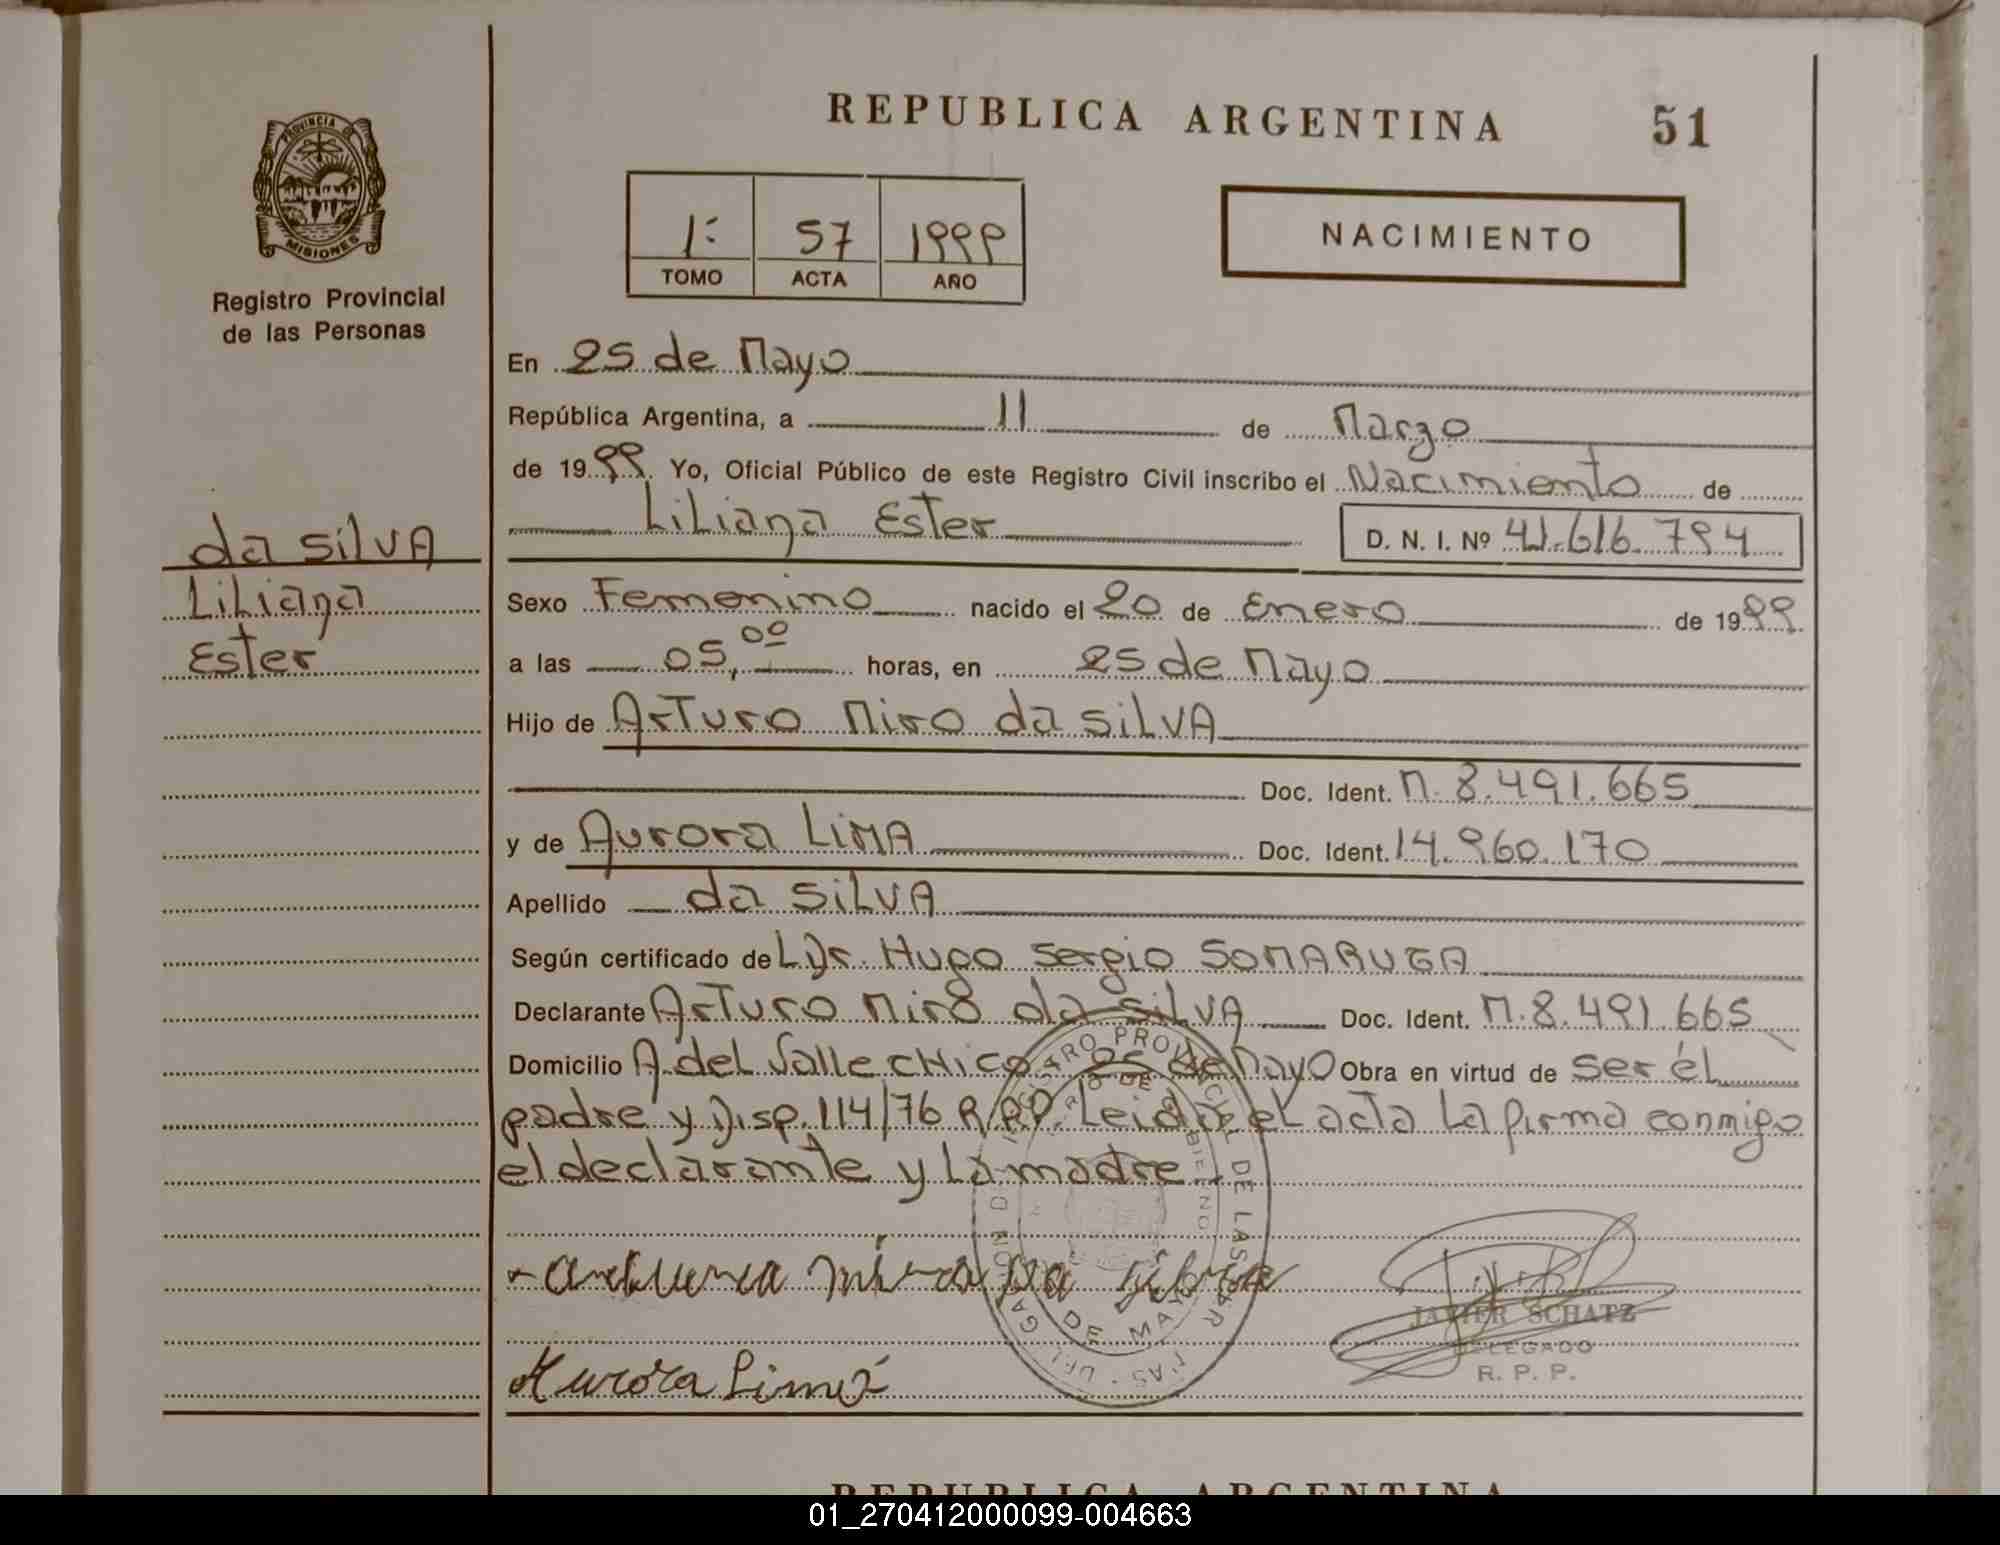 REPUBLICA ARGENTINA
51
PROVINCIA DE
MISIONES
Registro Provincial
de las Personas
1º 57 1999
TOMO ACTA AÑO
NACIMIENTO
En 25 de Mayo
República Argentina, a 11 de Marzo
de 1999. Yo, Oficial Público de este Registro Civil inscribo el Nacimiento de
Liliana Ester D. N. I. Nº 41.616.794
da SilVA
Liliana
Ester
Sexo Femenino nacido el 20 de Enero de 1999
a las 05,00 horas, en 25 de Mayo
Hijo de Arturo Miro da SilVA
Doc. Ident. M. 8.491.665
y de Aurora LiMA Doc. Ident. 14.960.170
Apellido da SilVA
Según certificado de L Dr. Hugo Sergio SOMARUGA
Declarante Arturo Miro da SilVA Doc. Ident. M. 8.491.665
Domicilio A. del Valle CHico 25 de Mayo Obra en virtud de ser él
padre y Disp. 114/76 R.P.P. Leida el acta la firma conmigo
el declarante y la madre.
da Silva
Aurora Lima
JAVIER SCHATZ
DELEGADO
R. P. P.
REGISTRO PROVINCIAL DE LAS PERSONAS
DE MAYO
REPUBLICA ARGENTINA
01_270412000099-004663